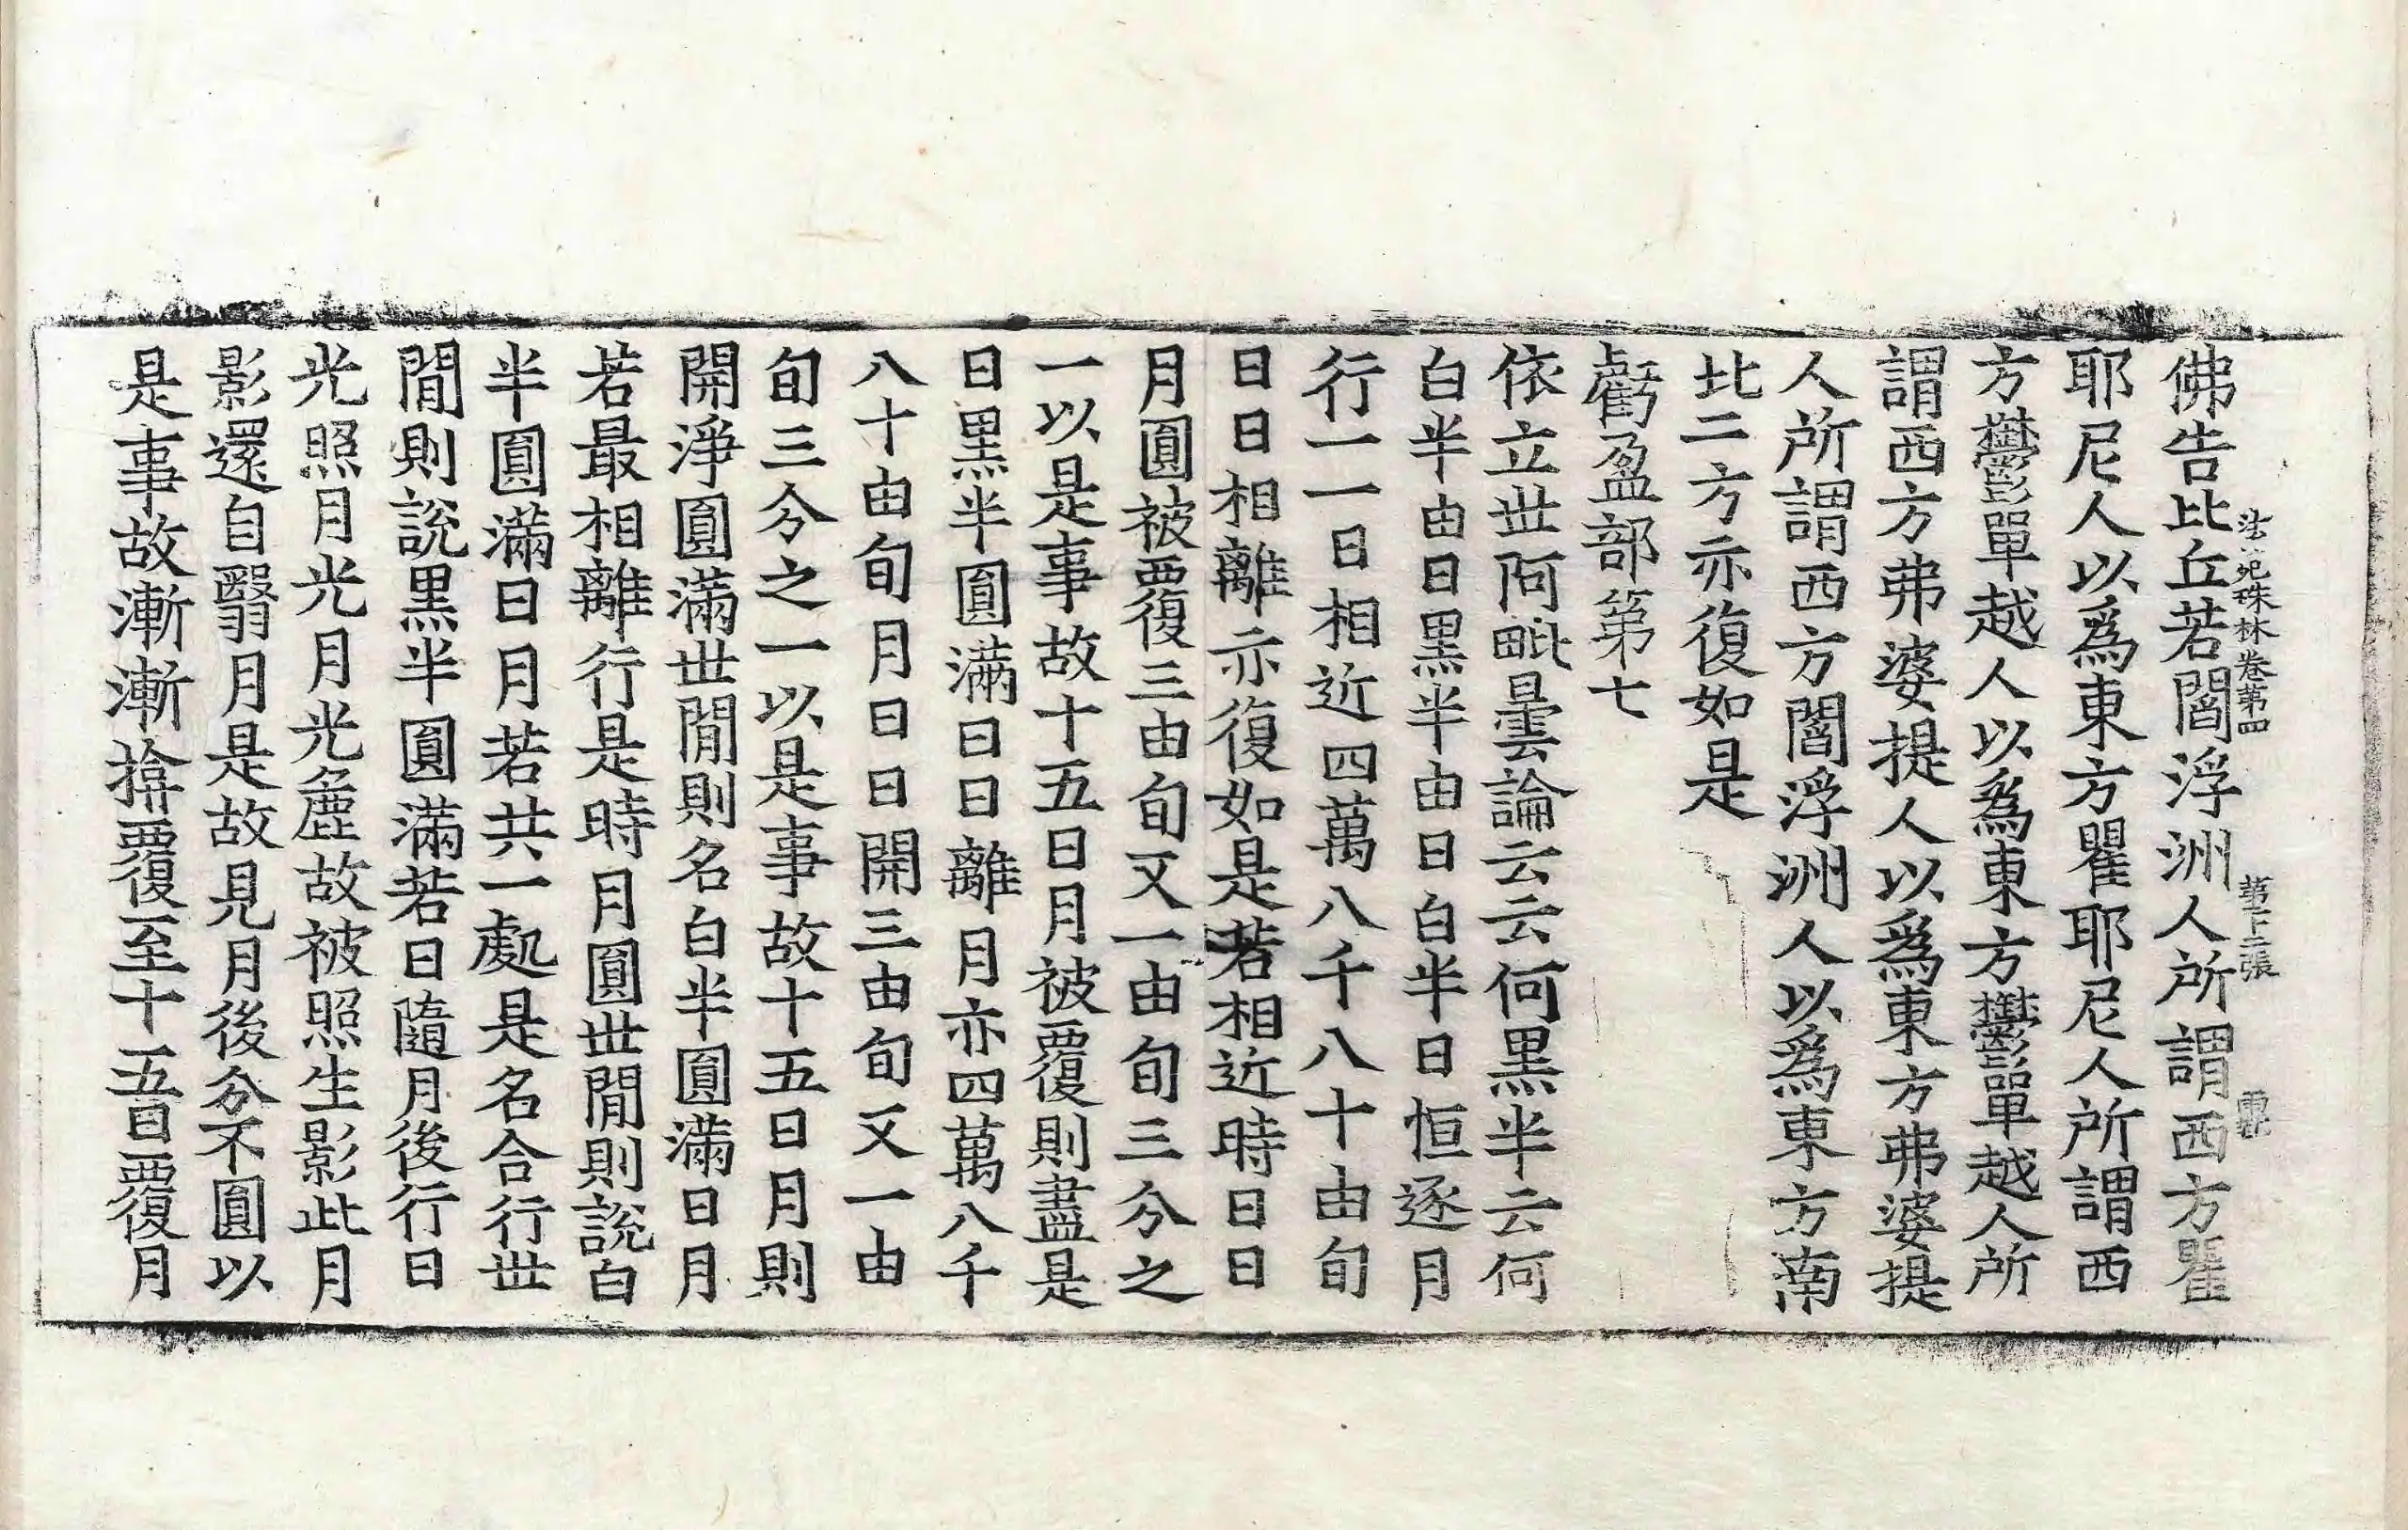 佛告比丘若閻浮洲人所謂西方瞿
法苑珠林卷第四 第十二張
耶尼人以爲東方瞿耶尼人所謂西
方鬱單越人以爲東方鬱單越人所
謂西方弗婆提人以爲東方弗婆提
人所謂西方閻浮洲人以爲東方南
北二方亦復如是
虧盈部第七
依立世阿毗曇論云云何黑半云何
白半由日黑半由日白半日恒逐月
行一一日相近四萬八千八十由旬
日日相離亦復如是若相近時日日
月圓被覆三由旬又一由旬三分之
一以是事故十五日月被覆則盡是
日黑半圓滿日日離月亦四萬八千
八十由旬月日日開三由旬又一由
旬三分之一以是事故十五日月則
開淨圓滿世間則名白半圓滿日月
若最相離行是時月圓世間則說白
半圓滿日月若共一處是名合行世
間則說黑半圓滿若日隨月後行日
光照月光月光麁故被照生影此月
影還自翳月是故見月後分不圓以
是事故漸漸揜覆至十五日覆月